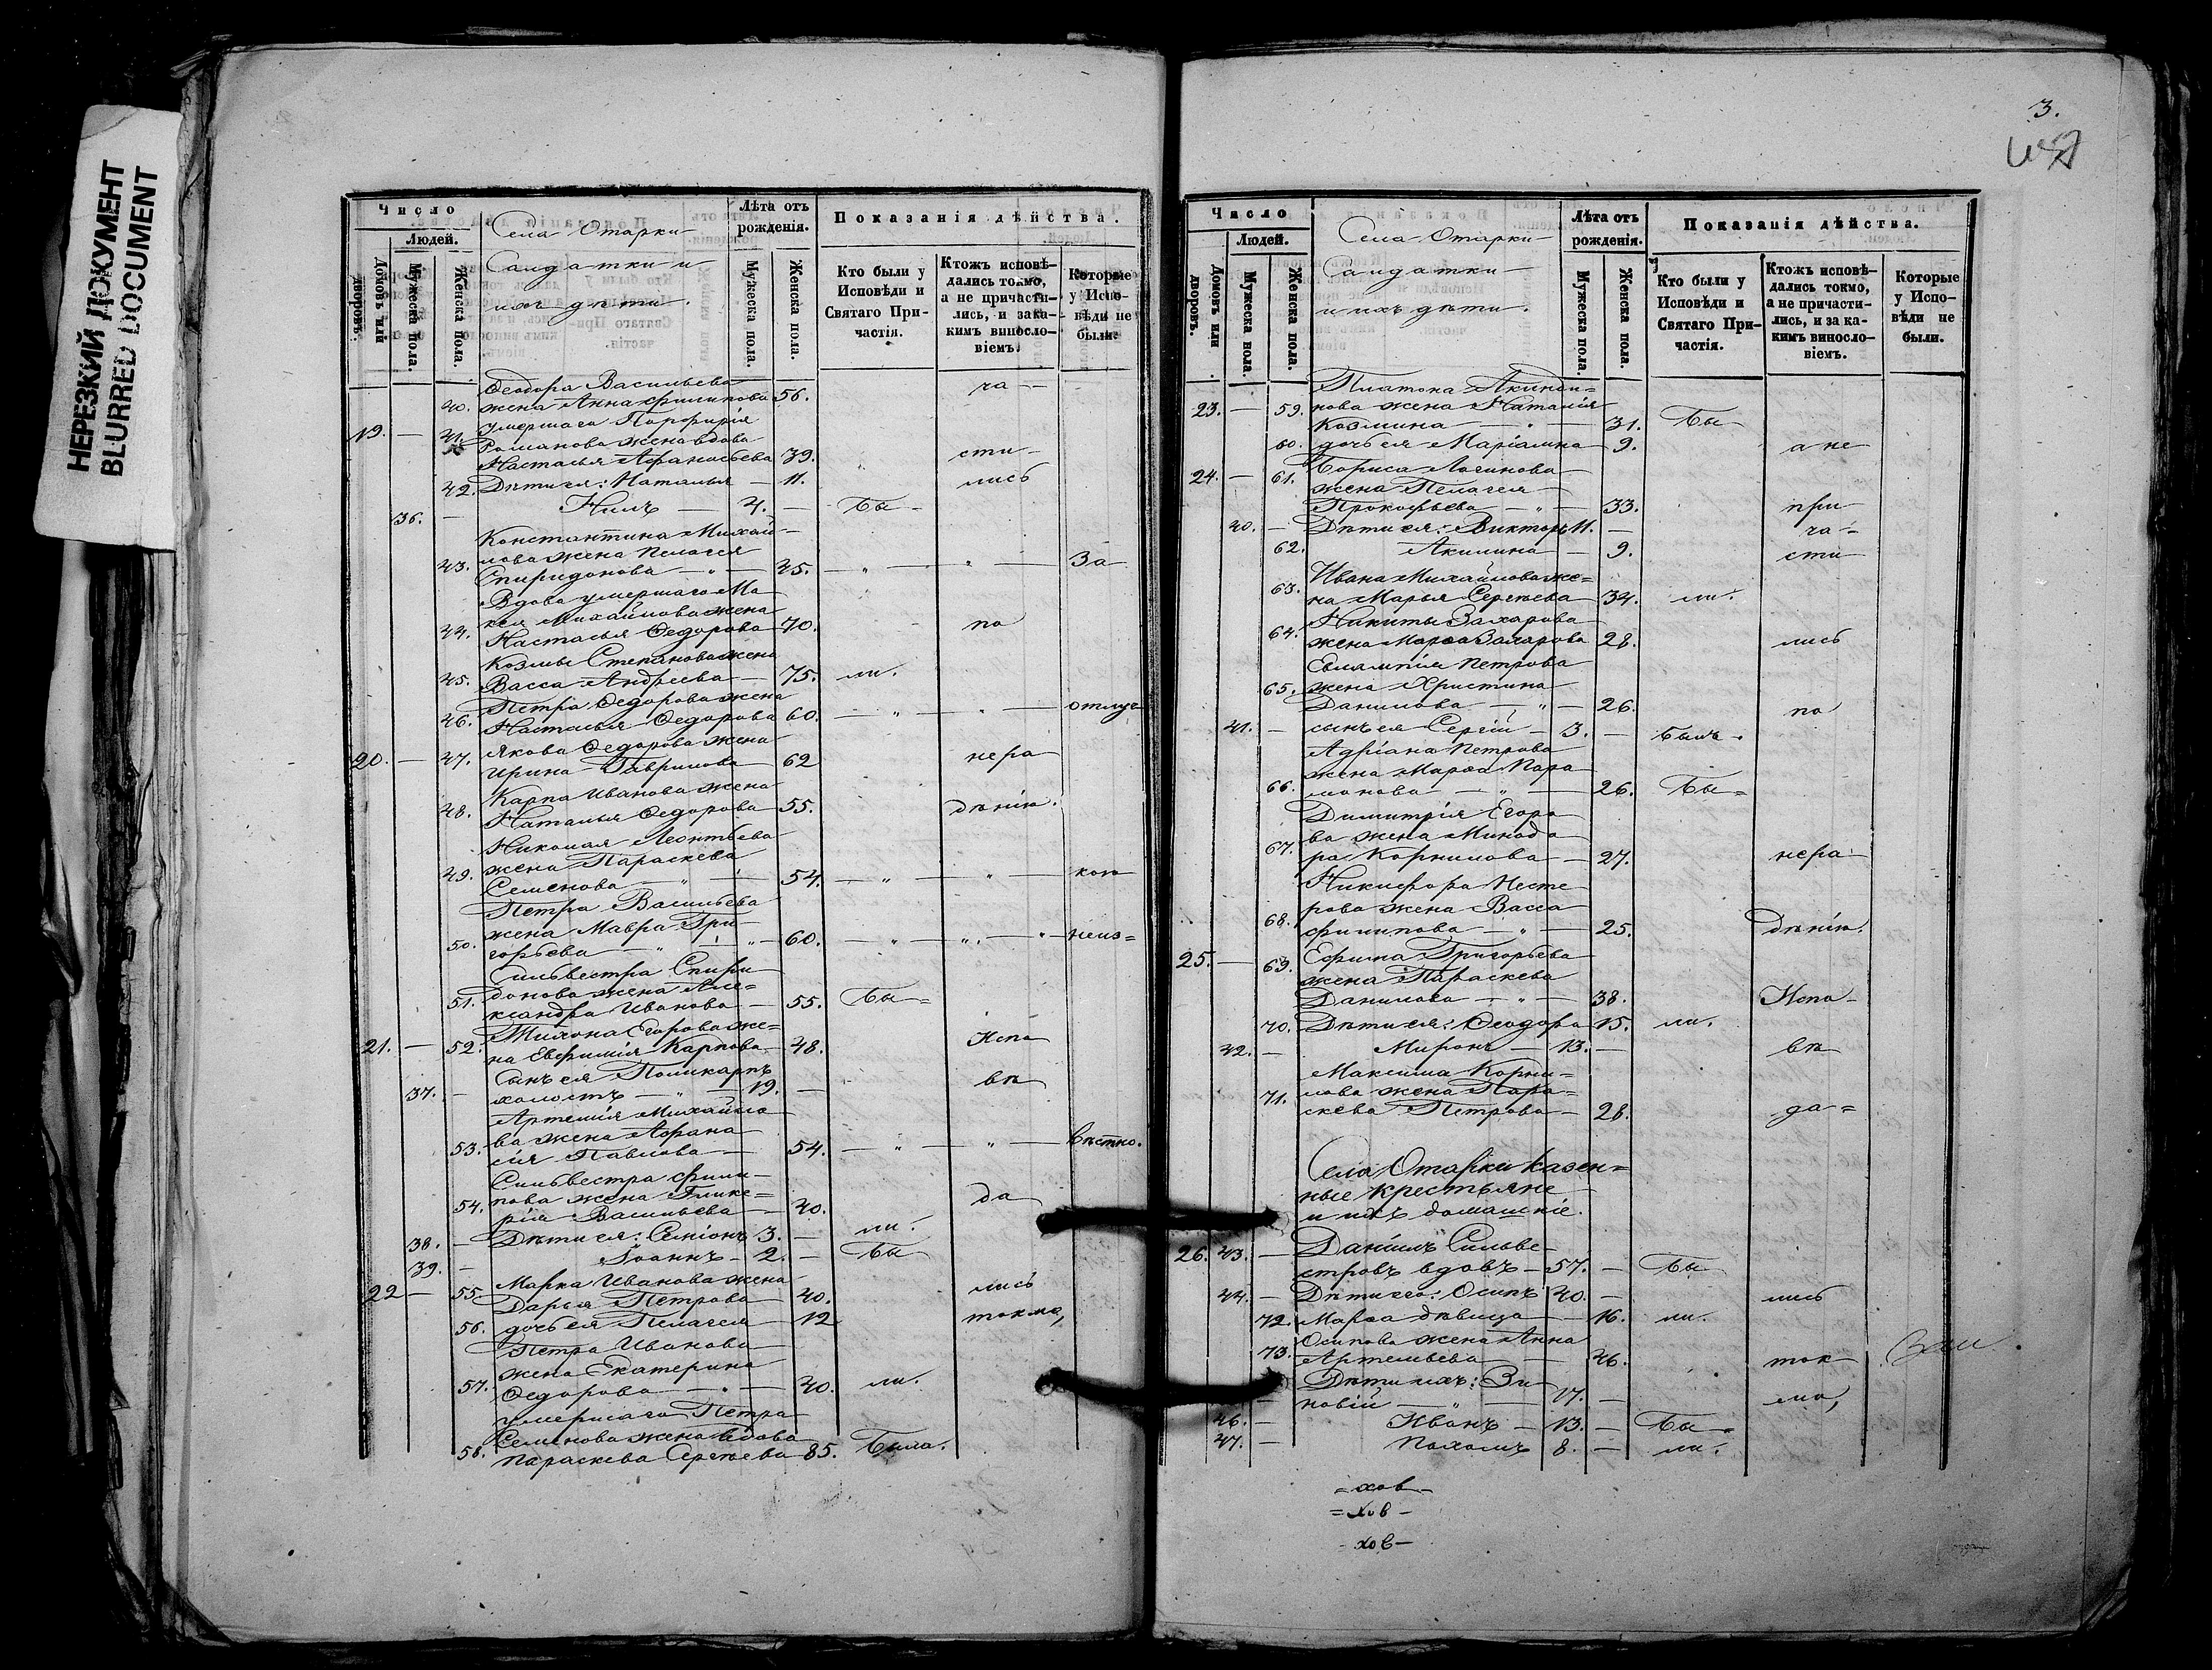 НЕРЕЗКИЙ ДОКУМЕНТ
BLURRED DOCUMENT
Число
Людей.
Домовъ или дворовъ.
Мужеска пола.
Женска пола.
Села Отарки
Салдатки и
ихъ дѣти.
Лѣта отъ рожденія.
Мужеска пола.
Женска пола.
Показанія дѣйства.
Кто были у Исповѣди и Святаго Причастія.
Ктожъ исповѣдались токмо, а не причастились, и за какимъ винословіемъ.
Которые у Исповѣди не были.
Ѳеодора Васильева
40. жена Анна Филипова 56. ча-
19. — 41. умершаго Порфирія
Романова жена вдова
Настасья Афанасьева 39. сти-
42. Дѣти ея: Наталья — 11. лись
36. — Нилъ — 4. — Бы-
Константина Михай-
43. лова жена Пелагея
Спиридонова — " — 45. — " — " — За
Вдова умершаго Мо-
кея Михайлова жена
44. Настасья Ѳедорова 70. по
Козмы Степанова жена
45. Васса Андреева — 75. ли.
Петра Ѳедорова жена
46. Настасья Ѳедорова 60. — " — " — отлуч-
20. — 47. Якова Ѳедорова жена
Ирина Гаврилова 62 нера
Карпа Иванова жена
48. Наталья Ѳедорова 55. дѣнію.
Николая Леонтьева
49. жена Параскева
Семенова — " — 54. — " — " — кою
Петра Васильева
50. жена Мавра Гри-
горьева — " — 60. — " — " — неиз=
Сильвестра Спири-
51. донова жена Але=
ксандра Иванова — 55. Бы=
21. — 52. Тихона Егорова же=
на Евфимія Карпова 48. Испо
Сынъ ея Поликарпъ вѣ
37. — холостъ — " — 19. —
Артемія Михайло
53. ва жена Афана
сія Павлова — 54. — " — " — вѣстно.
Сильвестра Фили-
54. пова жена Глике=
рія Васильева — 40. да
38. — Дѣти ея: Симіонъ 3. — ли.
39. — Іоаннъ — 2. — Бы
22 — 55. Марка Иванова жена
Дарья Петрова — 40. лись
56. дочь ея Пелагея — 12. токмо,
Петра Иванова
57. жена Екатерина
Ѳедорова — " — 40. ли.
умершаго Петра
Семенова жена вдова
58. Параскева Сергѣева 85. Была.
3.
Число
Людей.
Домовъ или дворовъ.
Мужеска пола.
Женска пола.
Села Отарки
Салдатки
и ихъ дѣти.
Лѣта отъ рожденія.
Мужеска пола.
Женска пола.
Показанія дѣйства.
Кто были у Исповѣди и Святаго Причастія.
Ктожъ исповѣдались токмо, а не причастились, и за какимъ винословіемъ.
Которые у Исповѣди не были.
Платона Акинди=
23. — 59. нова жена Наталія
Козмина — " — 31. Бы-
60. дочь ея Маріамна 9. а не
24. — 61. Бориса Логинова
жена Пелагея
Прокофьева — " — 33. при
40. — Дѣти ея: Викторъ 11. — ча-
62. Акилина — 9. сти
63. Ивана Михайлова же=
на Марья Сергѣева 34. ли.
64. Никиты Захарова
жена Марѳа Захарова 28. лись
Евлампія Петрова
65. жена Христина
Данилова — " — 26. по
41. — сынъ ея Сергій — 3. — былъ.
Адріана Петрова
66. жена Марѳа Пара
монова — " — 26. Бы=
Димитрія Егоро
67. ва жена Минодо
ра Корнилова — 27. нера
Никифора Несте
68. рова жена Васса
Филипова — " — 25. дѣнію.
25. — 69. Ефима Григорьева
жена Параскева
Данилова — " — 38. Испо-
70. Дѣти ея: Ѳеодора 15. ли.
42. — Миронъ — 13. — вѣ
Максима Корни=
71. лова жена Пара=
скева Петрова — 28. да=
Села Отарки казен=
ные крестьяне
и ихъ домашніе.
26. 43. — Даніилъ Сильве-
стровъ вдовъ — 57. — Бы
44. — Дѣти его: Осипъ 40. — лись
72. Марѳа дѣвица — 16. ли.
73. Осипова жена Анна
Артемьева — 46. ток
Дѣти ихъ: Зи-
новій — " — 17. — мо,
46. — Иванъ — 13. — Бы-
47. — Пахомъ 8. — ли.
=хов-
=хов-
-хов-